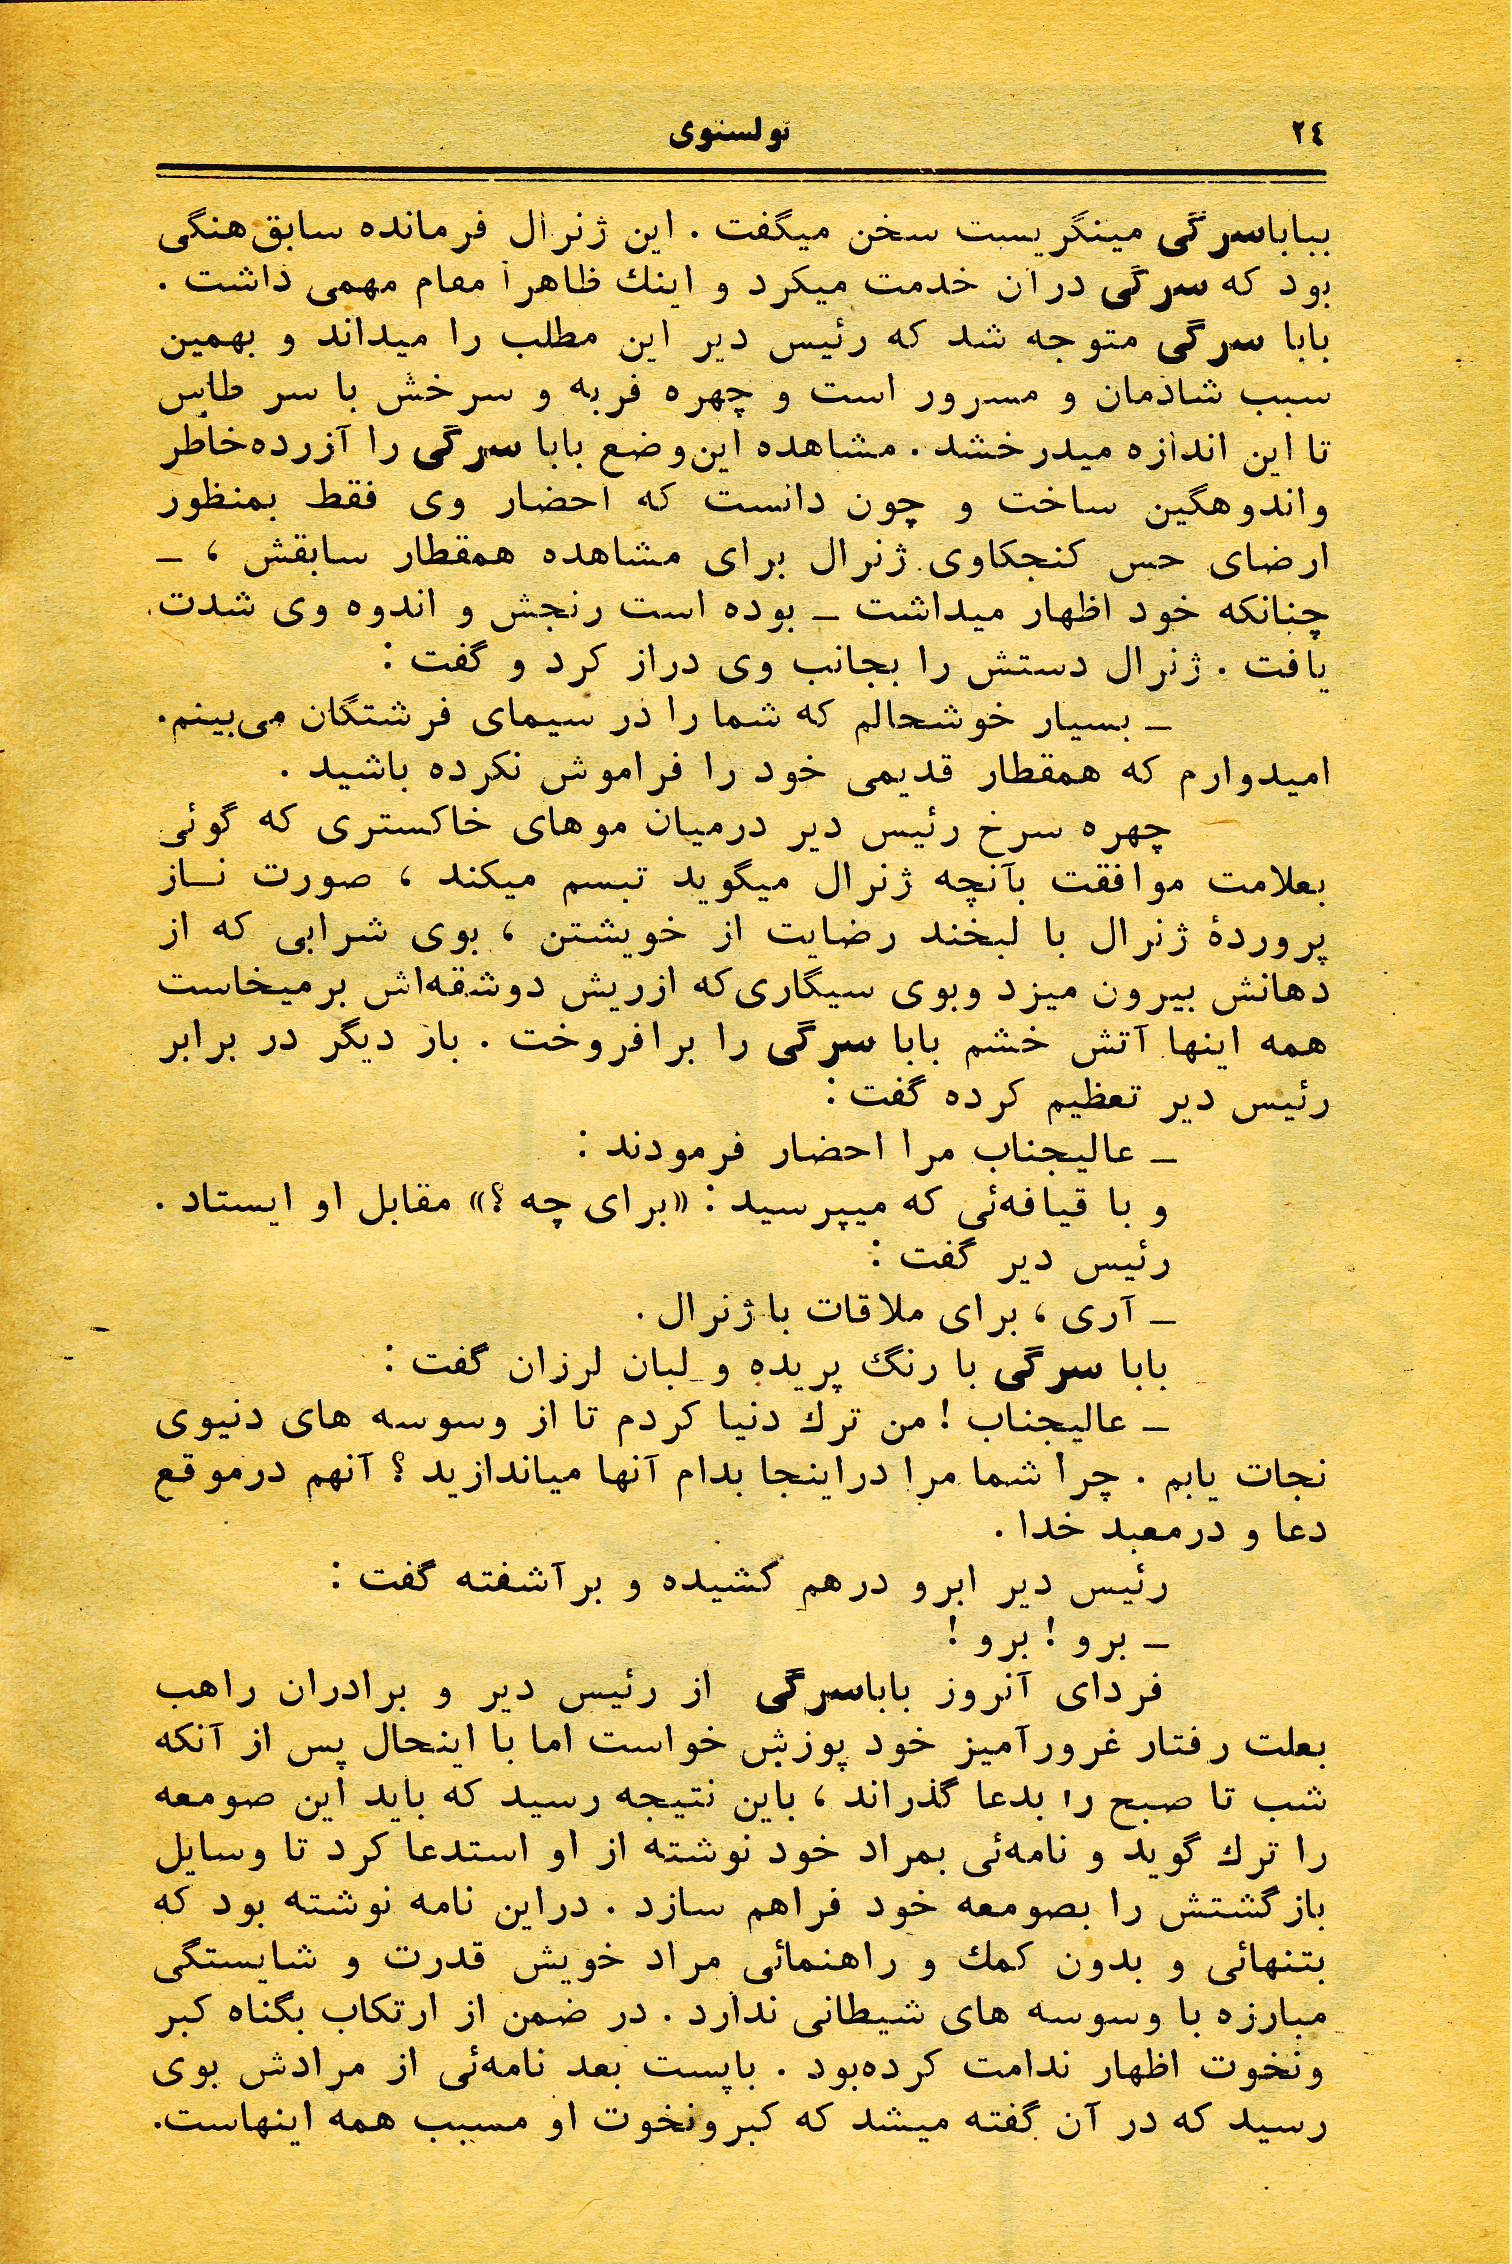 ٢٤
تولستوی
بباباسرگی مینگریست سخن میگفت . این ژنرال فرمانده سابق هنگی
بود که سرگی درآن خدمت میکرد و اینك ظاهراً مقام مهمی داشت .
بابا سرگی متوجه شد که رئیس دیر این مطلب را میداند و بهمین
سبب شادمان و مسرور است و چهره فربه و سرخش با سر طاس
تا این اندازه میدرخشد . مشاهده این‌وضع بابا سرگی را آزرده‌خاطر
واندوهگین ساخت و چون دانست که احضار وی فقط بمنظور
ارضای حس کنجکاوی ژنرال برای مشاهده همقطار سابقش ، ـ
چنانکه خود اظهار میداشت ـ بوده است رنجش و اندوه وی شدت
یافت . ژنرال دستش را بجانب وی دراز کرد و گفت :
ـ بسیار خوشحالم که شما را در سیمای فرشتگان می‌بینم.
امیدوارم که همقطار قدیمی خود را فراموش نکرده باشید .
چهره سرخ رئیس دیر درمیان موهای خاکستری که گوئی
بعلامت موافقت بآنچه ژنرال میگوید تبسم میکند ، صورت نـاز
پروردهٔ ژنرال با لبخند رضایت از خویشتن ، بوی شرابی که از
دهانش بیرون میزد وبوی سیگاری‌که ازریش دوشقه‌اش برمیخاست
همه اینها آتش خشم بابا سرگی را برافروخت . باز دیگر در برابر
رئیس دیر تعظیم کرده گفت :
ـ عالیجناب مرا احضار فرمودند :
و با قیافه‌ئی که میپرسید : «برای چه ؟» مقابل او ایستاد .
رئیس دیر گفت :
ـ آری ، برای ملاقات با ژنرال .
بابا سرگی با رنگ پریده و لبان لرزان گفت :
ـ عالیجناب ! من ترك دنیا کردم تا از وسوسه های دنیوی
نجات یابم . چرا شما مرا دراینجا بدام آنها میاندازید ؟ آنهم درموقع
دعا و درمعبد خدا .
رئیس دیر ابرو درهم کشیده و برآشفته گفت :
ـ برو ! برو !
فردای آنروز باباسرگی از رئیس دیر و برادران راهب
بعلت رفتار غرورآمیز خود پوزش خواست اما با اینحال پس از آنکه
شب تا صبح را بدعا گذراند ، باین نتیجه رسید که باید این صومعه
را ترك گوید و نامه‌ئی بمراد خود نوشته از او استدعا کرد تا وسایل
بازگشتش را بصومعه خود فراهم سازد . دراین نامه نوشته بود که
بتنهائی و بدون کمك و راهنمائی مراد خویش قدرت و شایستگی
مبارزه با وسوسه های شیطانی ندارد . در ضمن از ارتکاب بگناه کبر
ونخوت اظهار ندامت کرده‌بود . باپست بعد نامه‌ئی از مرادش بوی
رسید که در آن گفته میشد که کبرونخوت او مسبب همه اینهاست.